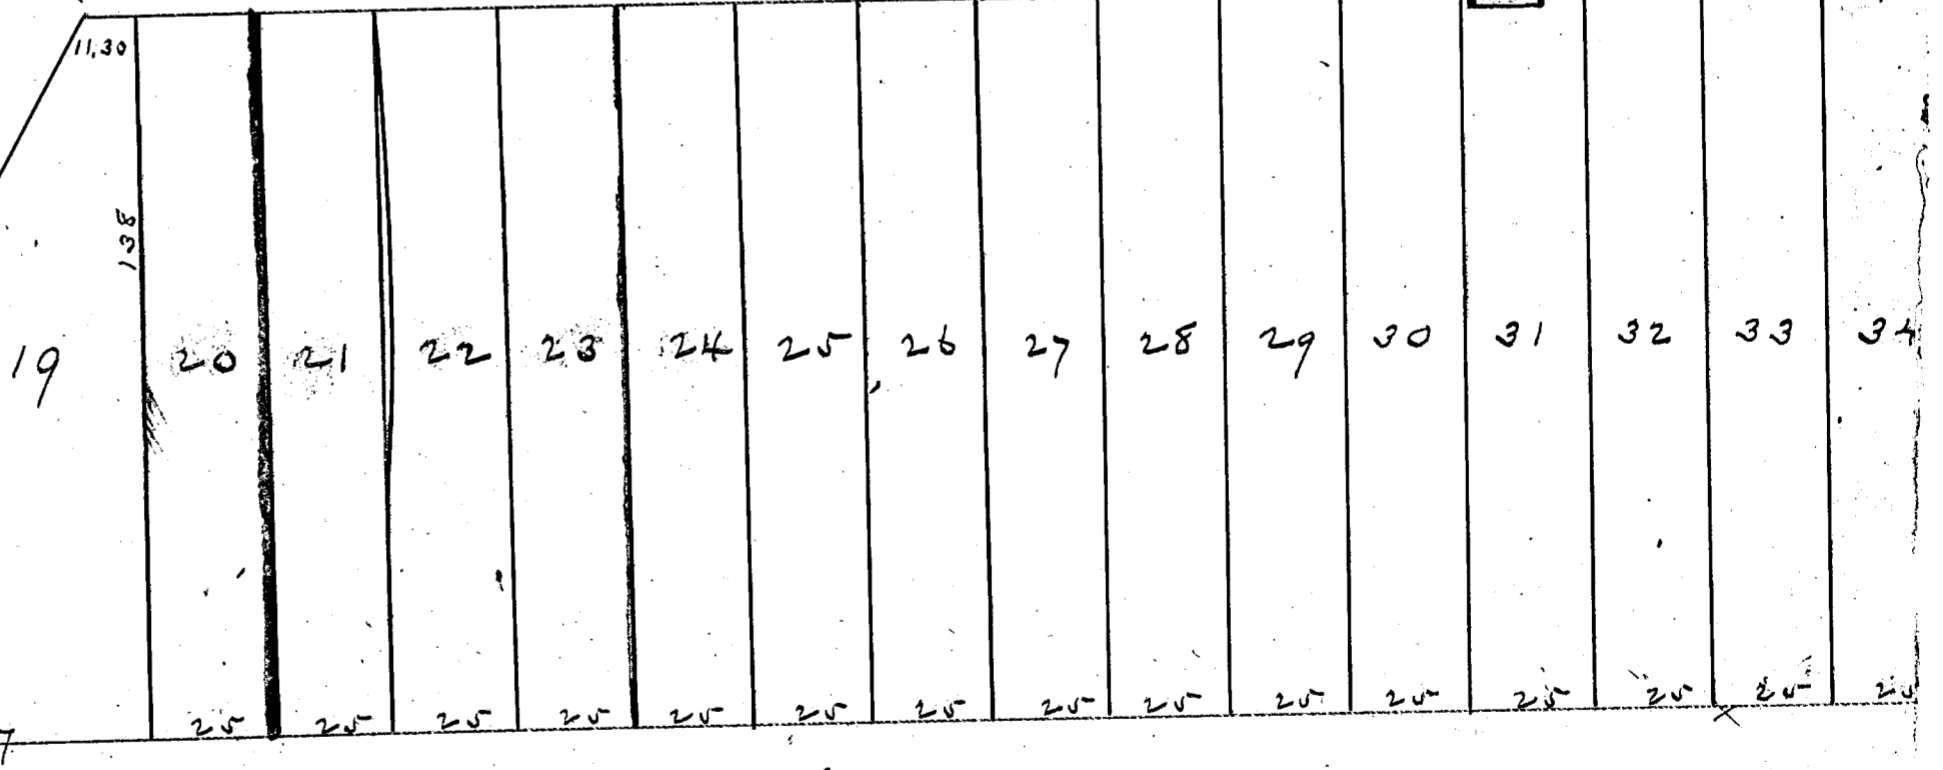 11.30
138
19 20 21 22 23 24 25 26 27 28 29 30 31 32 33 34
25 25 25 25 25 25 25 25 25 25 25 25 25 25 25
7